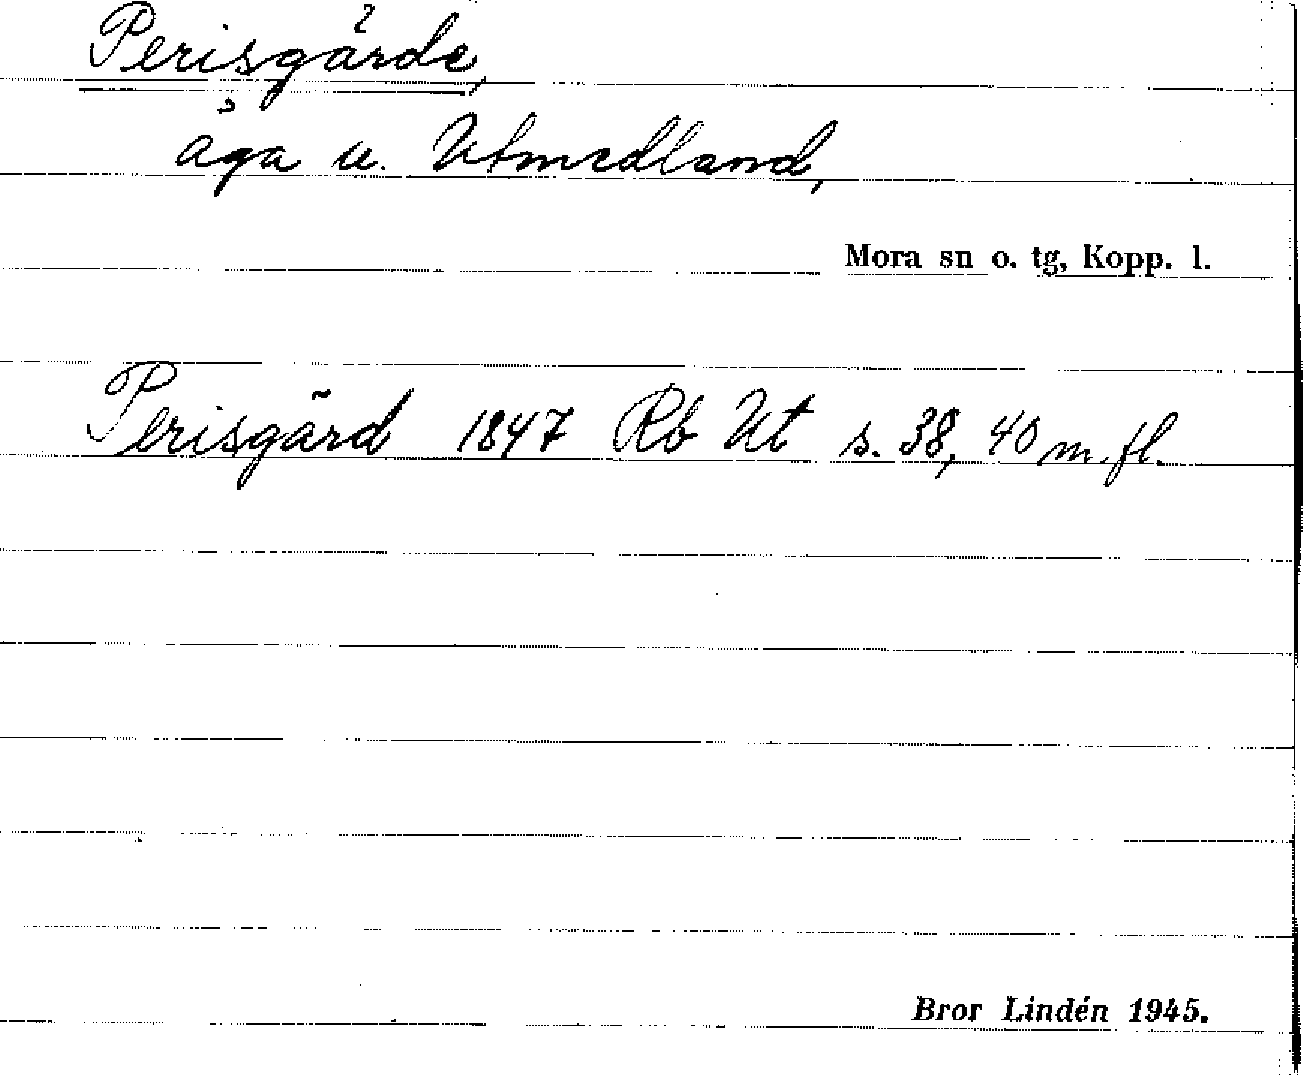 Perisgärde,
äga u. Utmedland,
Mora sn o. tg, Kopp. l.
Perisgärd 1847 Rb Ut s. 38, 40 m. fl.
Bror Lindén 1945.